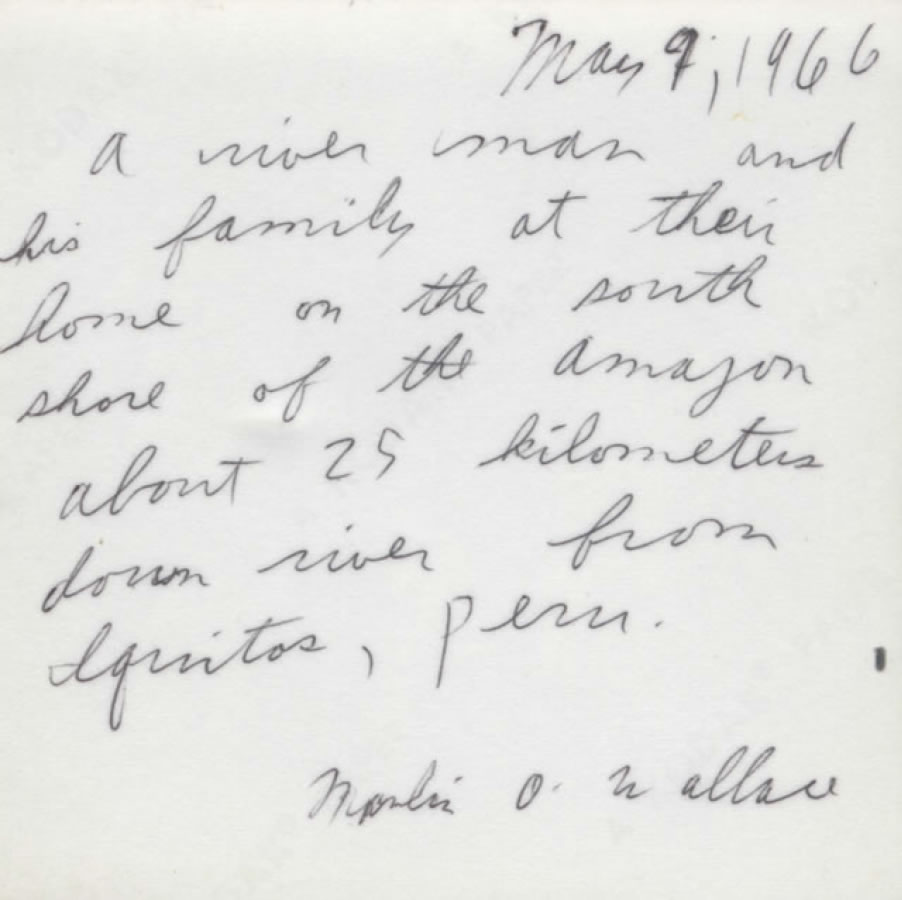 May 9, 1966
A river man and
his family at their
home on the south
shore of the Amazon
about 25 kilometers
down river from
Iquitos, Peru.
O. Wallace